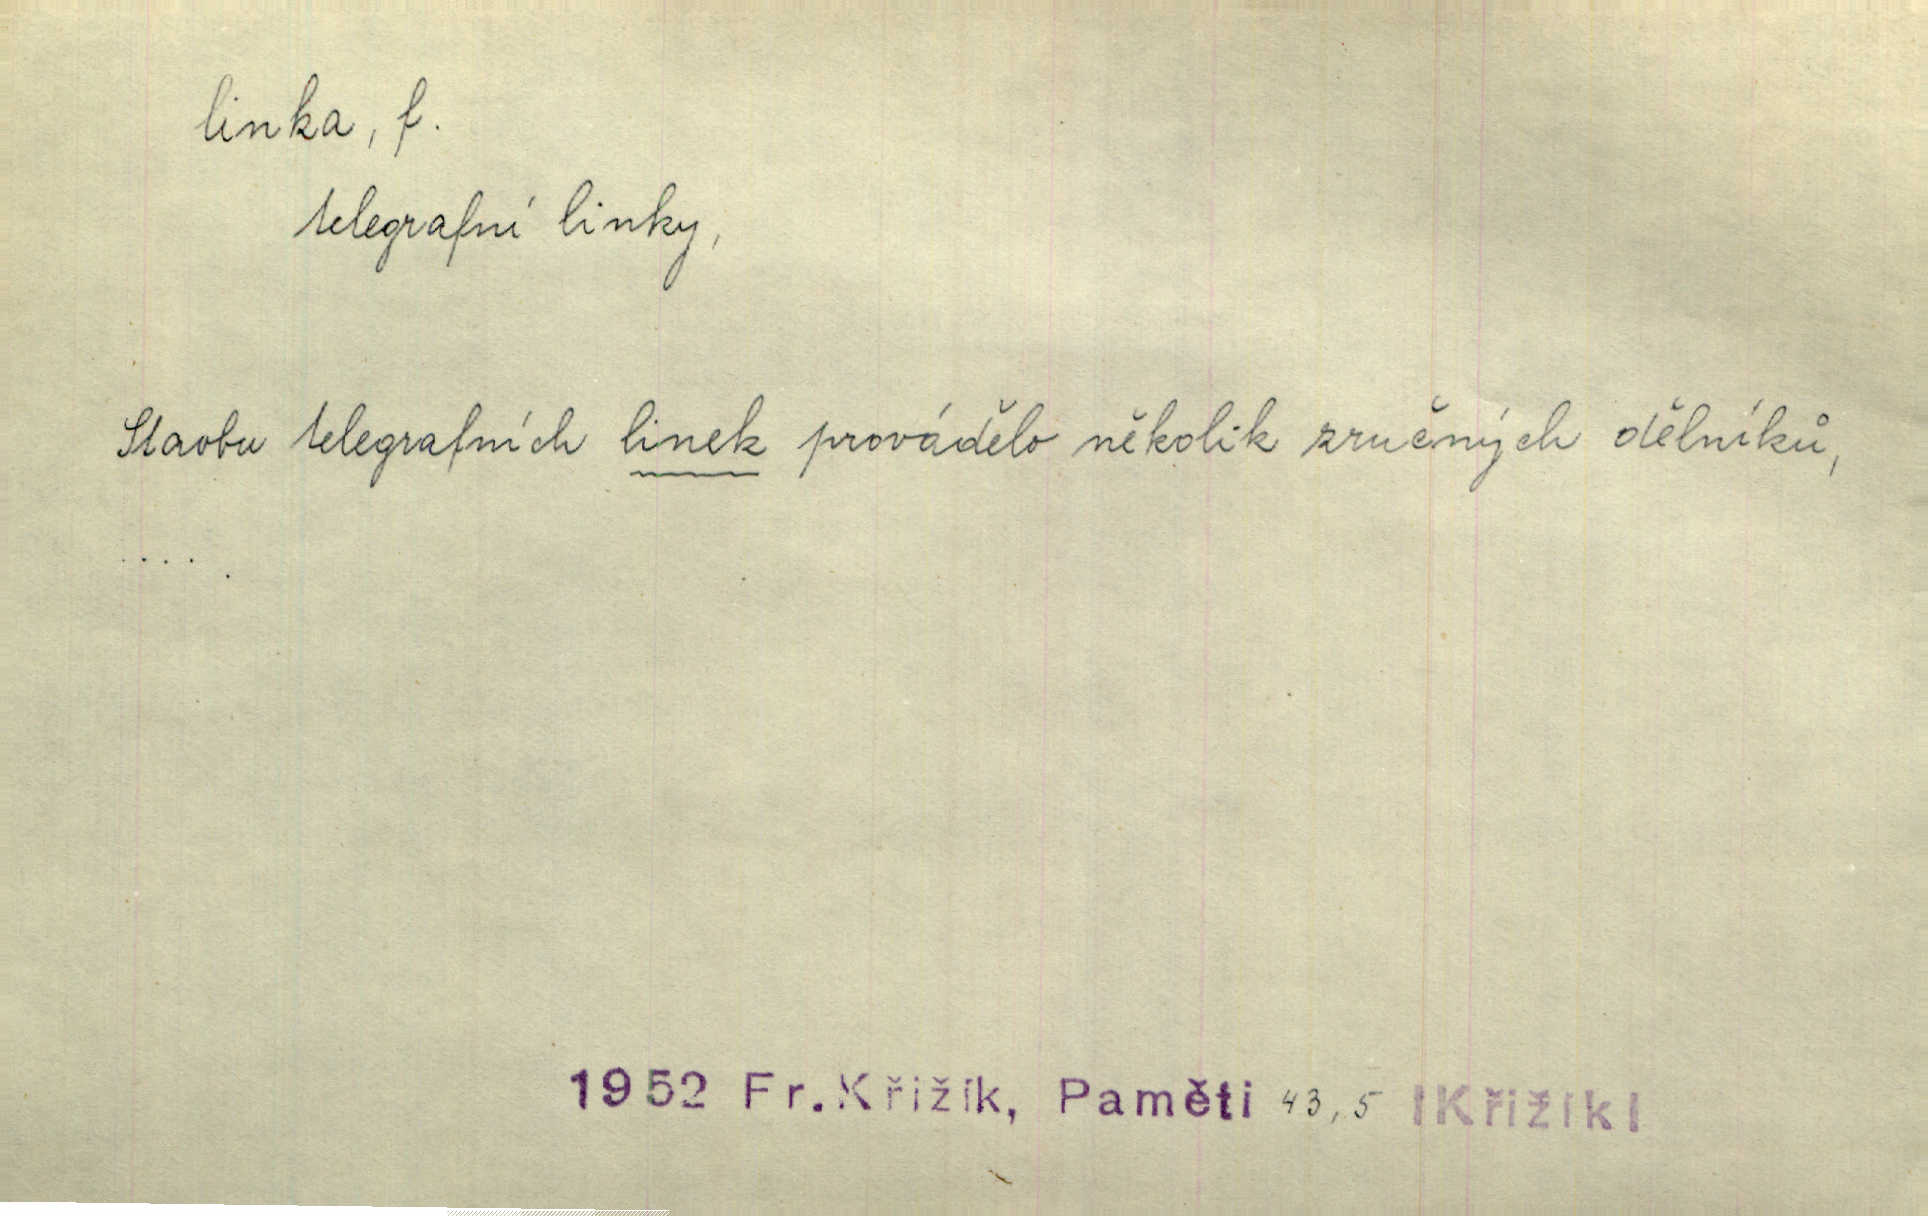 linka, f.
telegrafní linky,
Stavbu telegrafních linek provádělo několik zručných dělníků,
.....
1952 Fr. Křižík, Paměti 43,5 |Křižík|